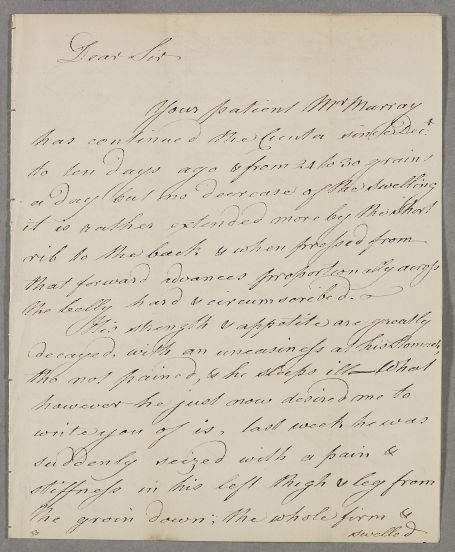 Dear Sir
Your patient Mr Murray
has continued the Cicuta since Decr.
to ten days ago & from 24 to 30 grains
a day but no decrease of the swelling
it is rather extended more by the short
rib to the back & when pressed from
that forward advances proportionally across
the belly hard & circumscribed.
His strength & appetite are greatly
decayed, with an uneasiness at his Stomach,
tho not pained, & he sleeps ill. What
however he just now desired me to
write you of is, last week he was
suddenly seized with a pain &
stiffness in his left thigh & leg from
the groin down; the whole firm &
swelled
53